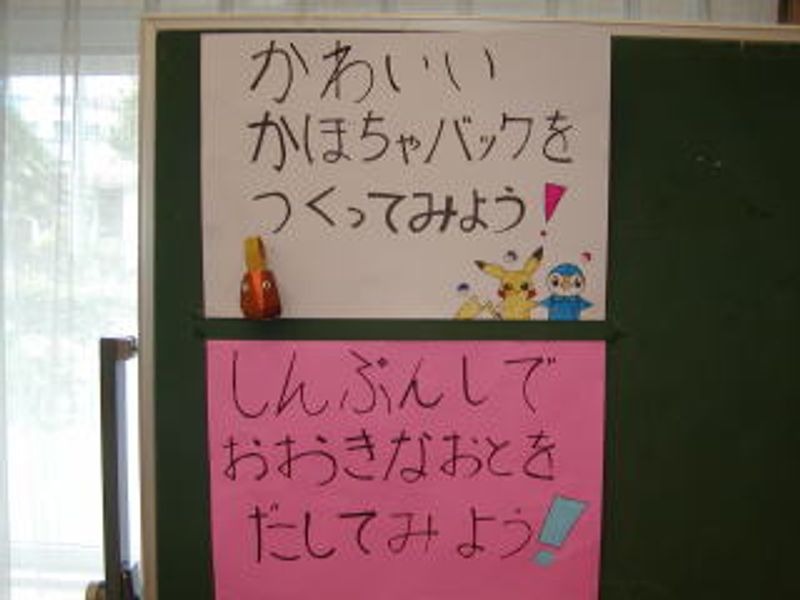 かわいい
かぼちゃバックを
つくってみよう!
しんぶんしで
おおきなおとを
だしてみよう!